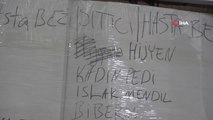 sta BEZ BİTİCİ HASTA BE
HİJYEN
KADIN PEDİ
ISLAK MENDİL
BİBER
İHA